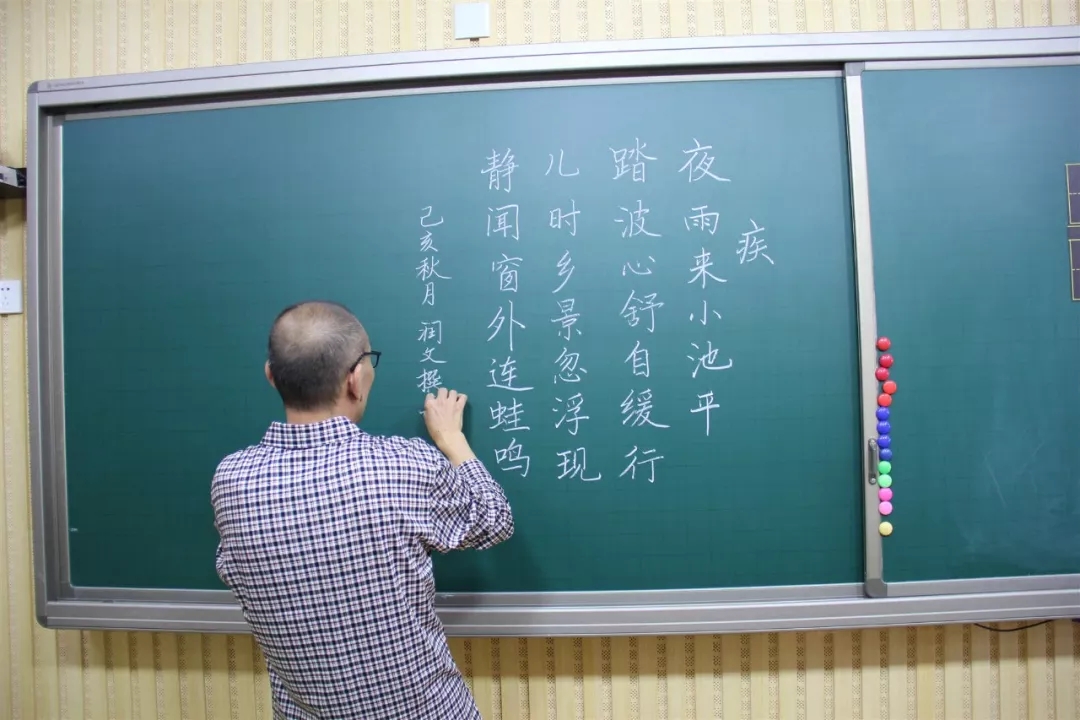 夜雨疾来小池平
踏波心舒自缓行
儿时乡景忽浮现
静闻窗外连蛙鸣
己亥秋月 润文撰